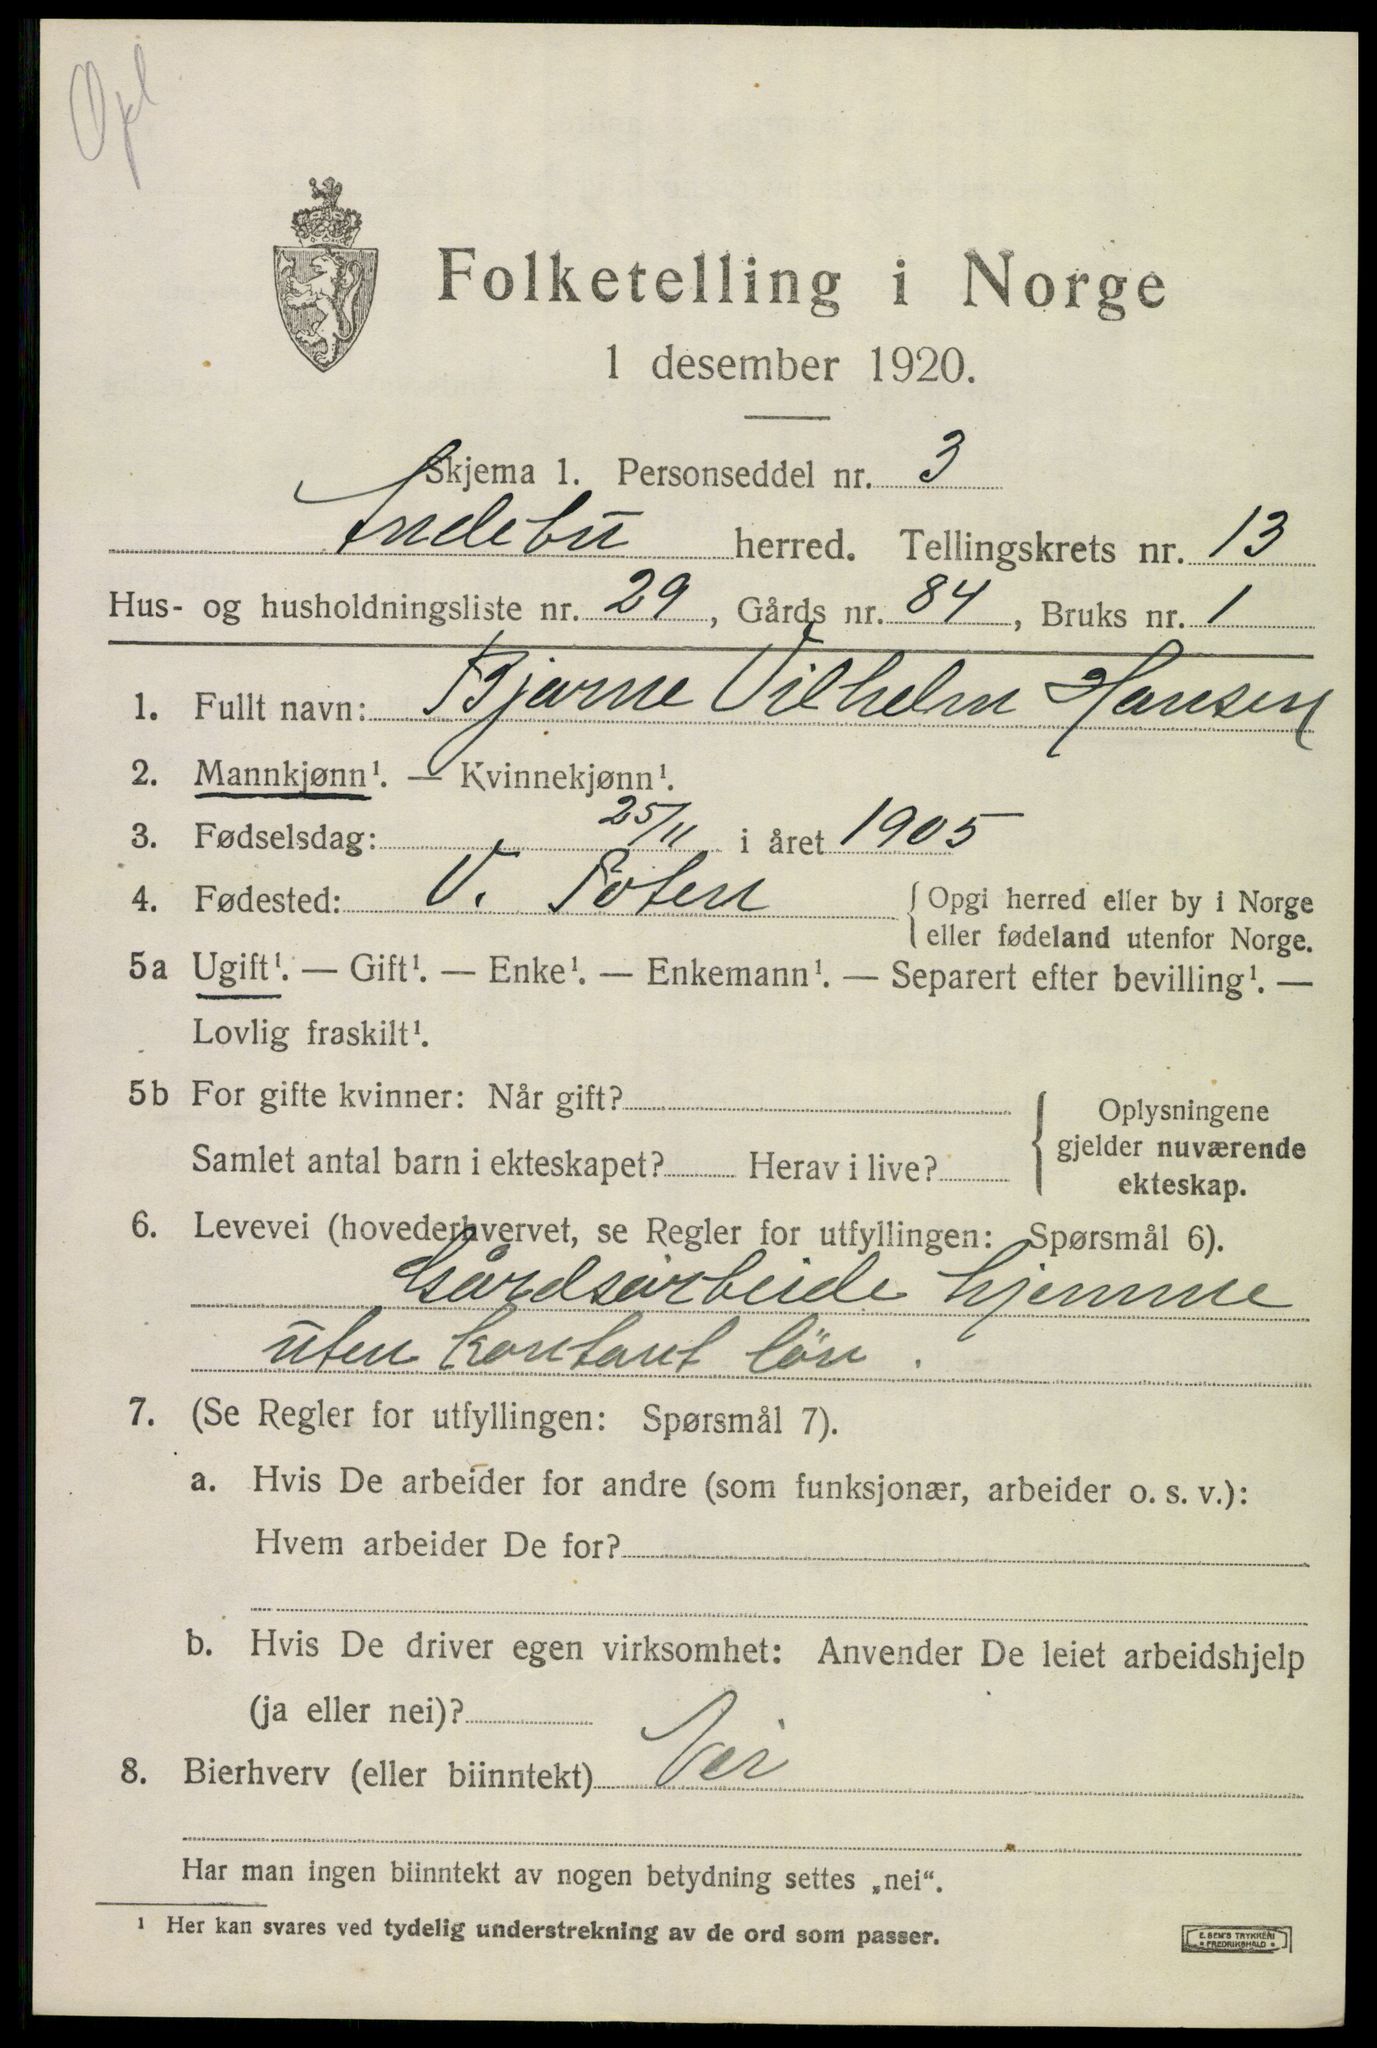 Opl
Folketelling i Norge
1 desember 1920.
Skjema 1. Personseddel nr. 3
Andebu herred. Tellingskrets nr. 13
Hus- og husholdningsliste nr. 29, Gårds nr. 84, Bruks nr. 1
1. Fullt navn: Bjarne Vilhelm Hansen
2. Mannkjønn¹. — Kvinnekjønn¹.
3. Fødselsdag: 25/11 i året 1905
4. Fødested: V. Toten { Opgi herred eller by i Norge
eller fødeland utenfor Norge.
5a Ugift¹. — Gift¹. — Enke¹. — Enkemann¹. — Separert efter bevilling¹. —
Lovlig fraskilt¹.
5b For gifte kvinner: Når gift?
Samlet antal barn i ekteskapet? Herav i live?
{ Oplysningene
gjelder nuværende
ekteskap.
6. Levevei (hovederhvervet, se Regler for utfyllingen: Spørsmål 6).
Gårdsarbeide hjemme
uten kontant lön.
7. (Se Regler for utfyllingen: Spørsmål 7).
a. Hvis De arbeider for andre (som funksjonær, arbeider o. s. v.):
Hvem arbeider De for?
b. Hvis De driver egen virksomhet: Anvender De leiet arbeidshjelp
(ja eller nei)?
8. Bierhverv (eller biinntekt) Nei
Har man ingen biinntekt av nogen betydning settes „nei“.
¹ Her kan svares ved tydelig understrekning av de ord som passer.
E. SEM'S TRYKKERI
• FREDRIKSHALD •